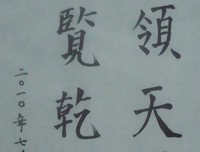 領天
覽乾
二〇一〇年七